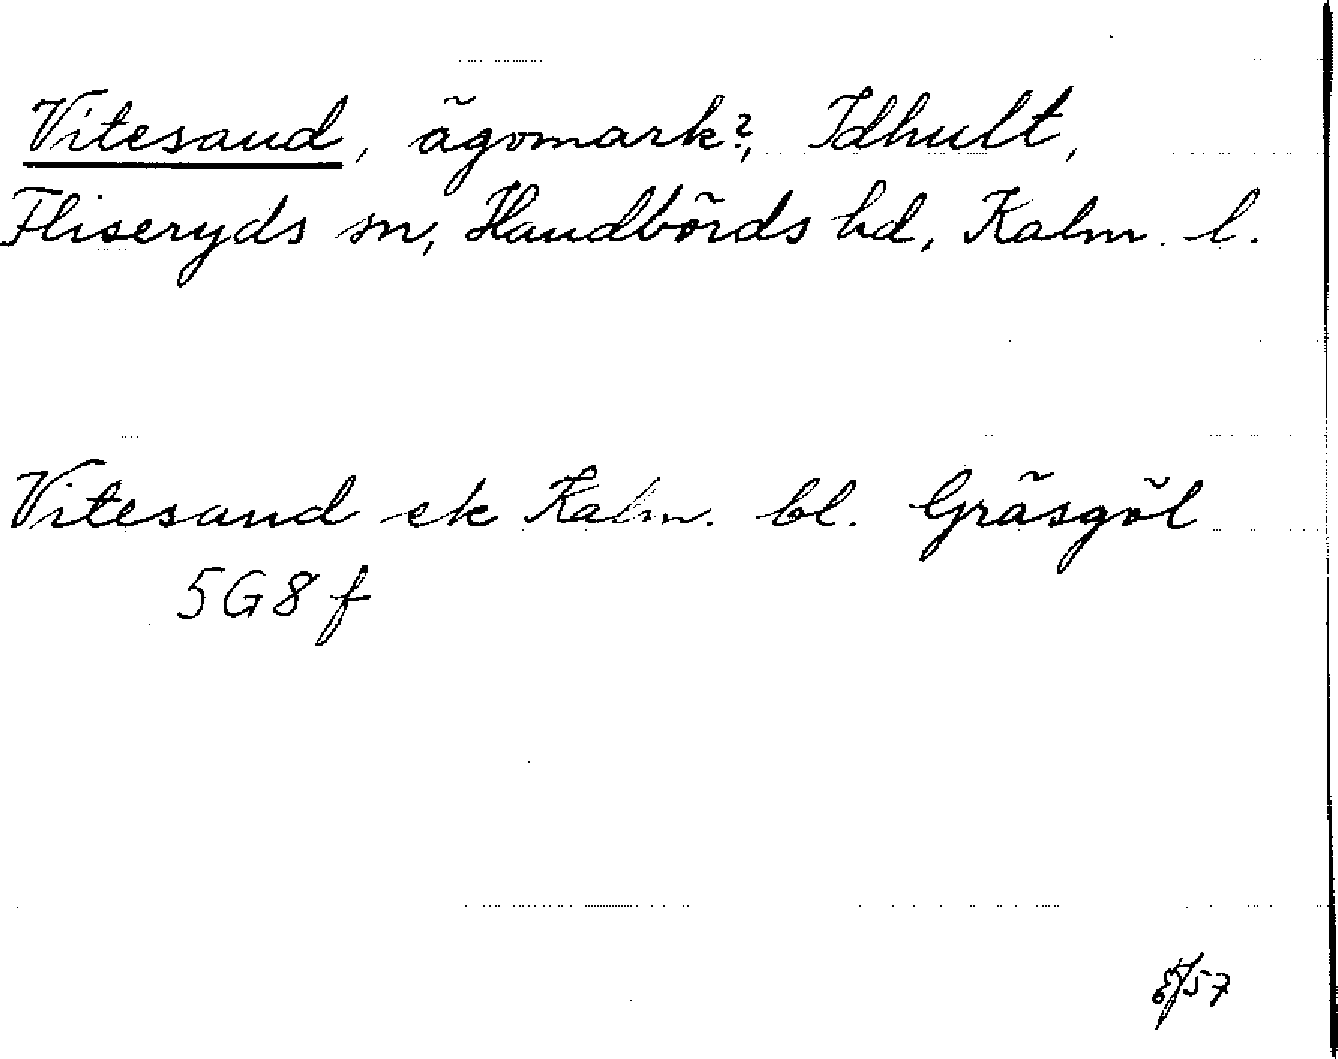 Vitesand, ägomark?, Idhult,
Fliseryds sn, Handbörds hd, Kalm. l.
Vitesand ek Kalm. bl. Gräsgöl
5G8f
/57